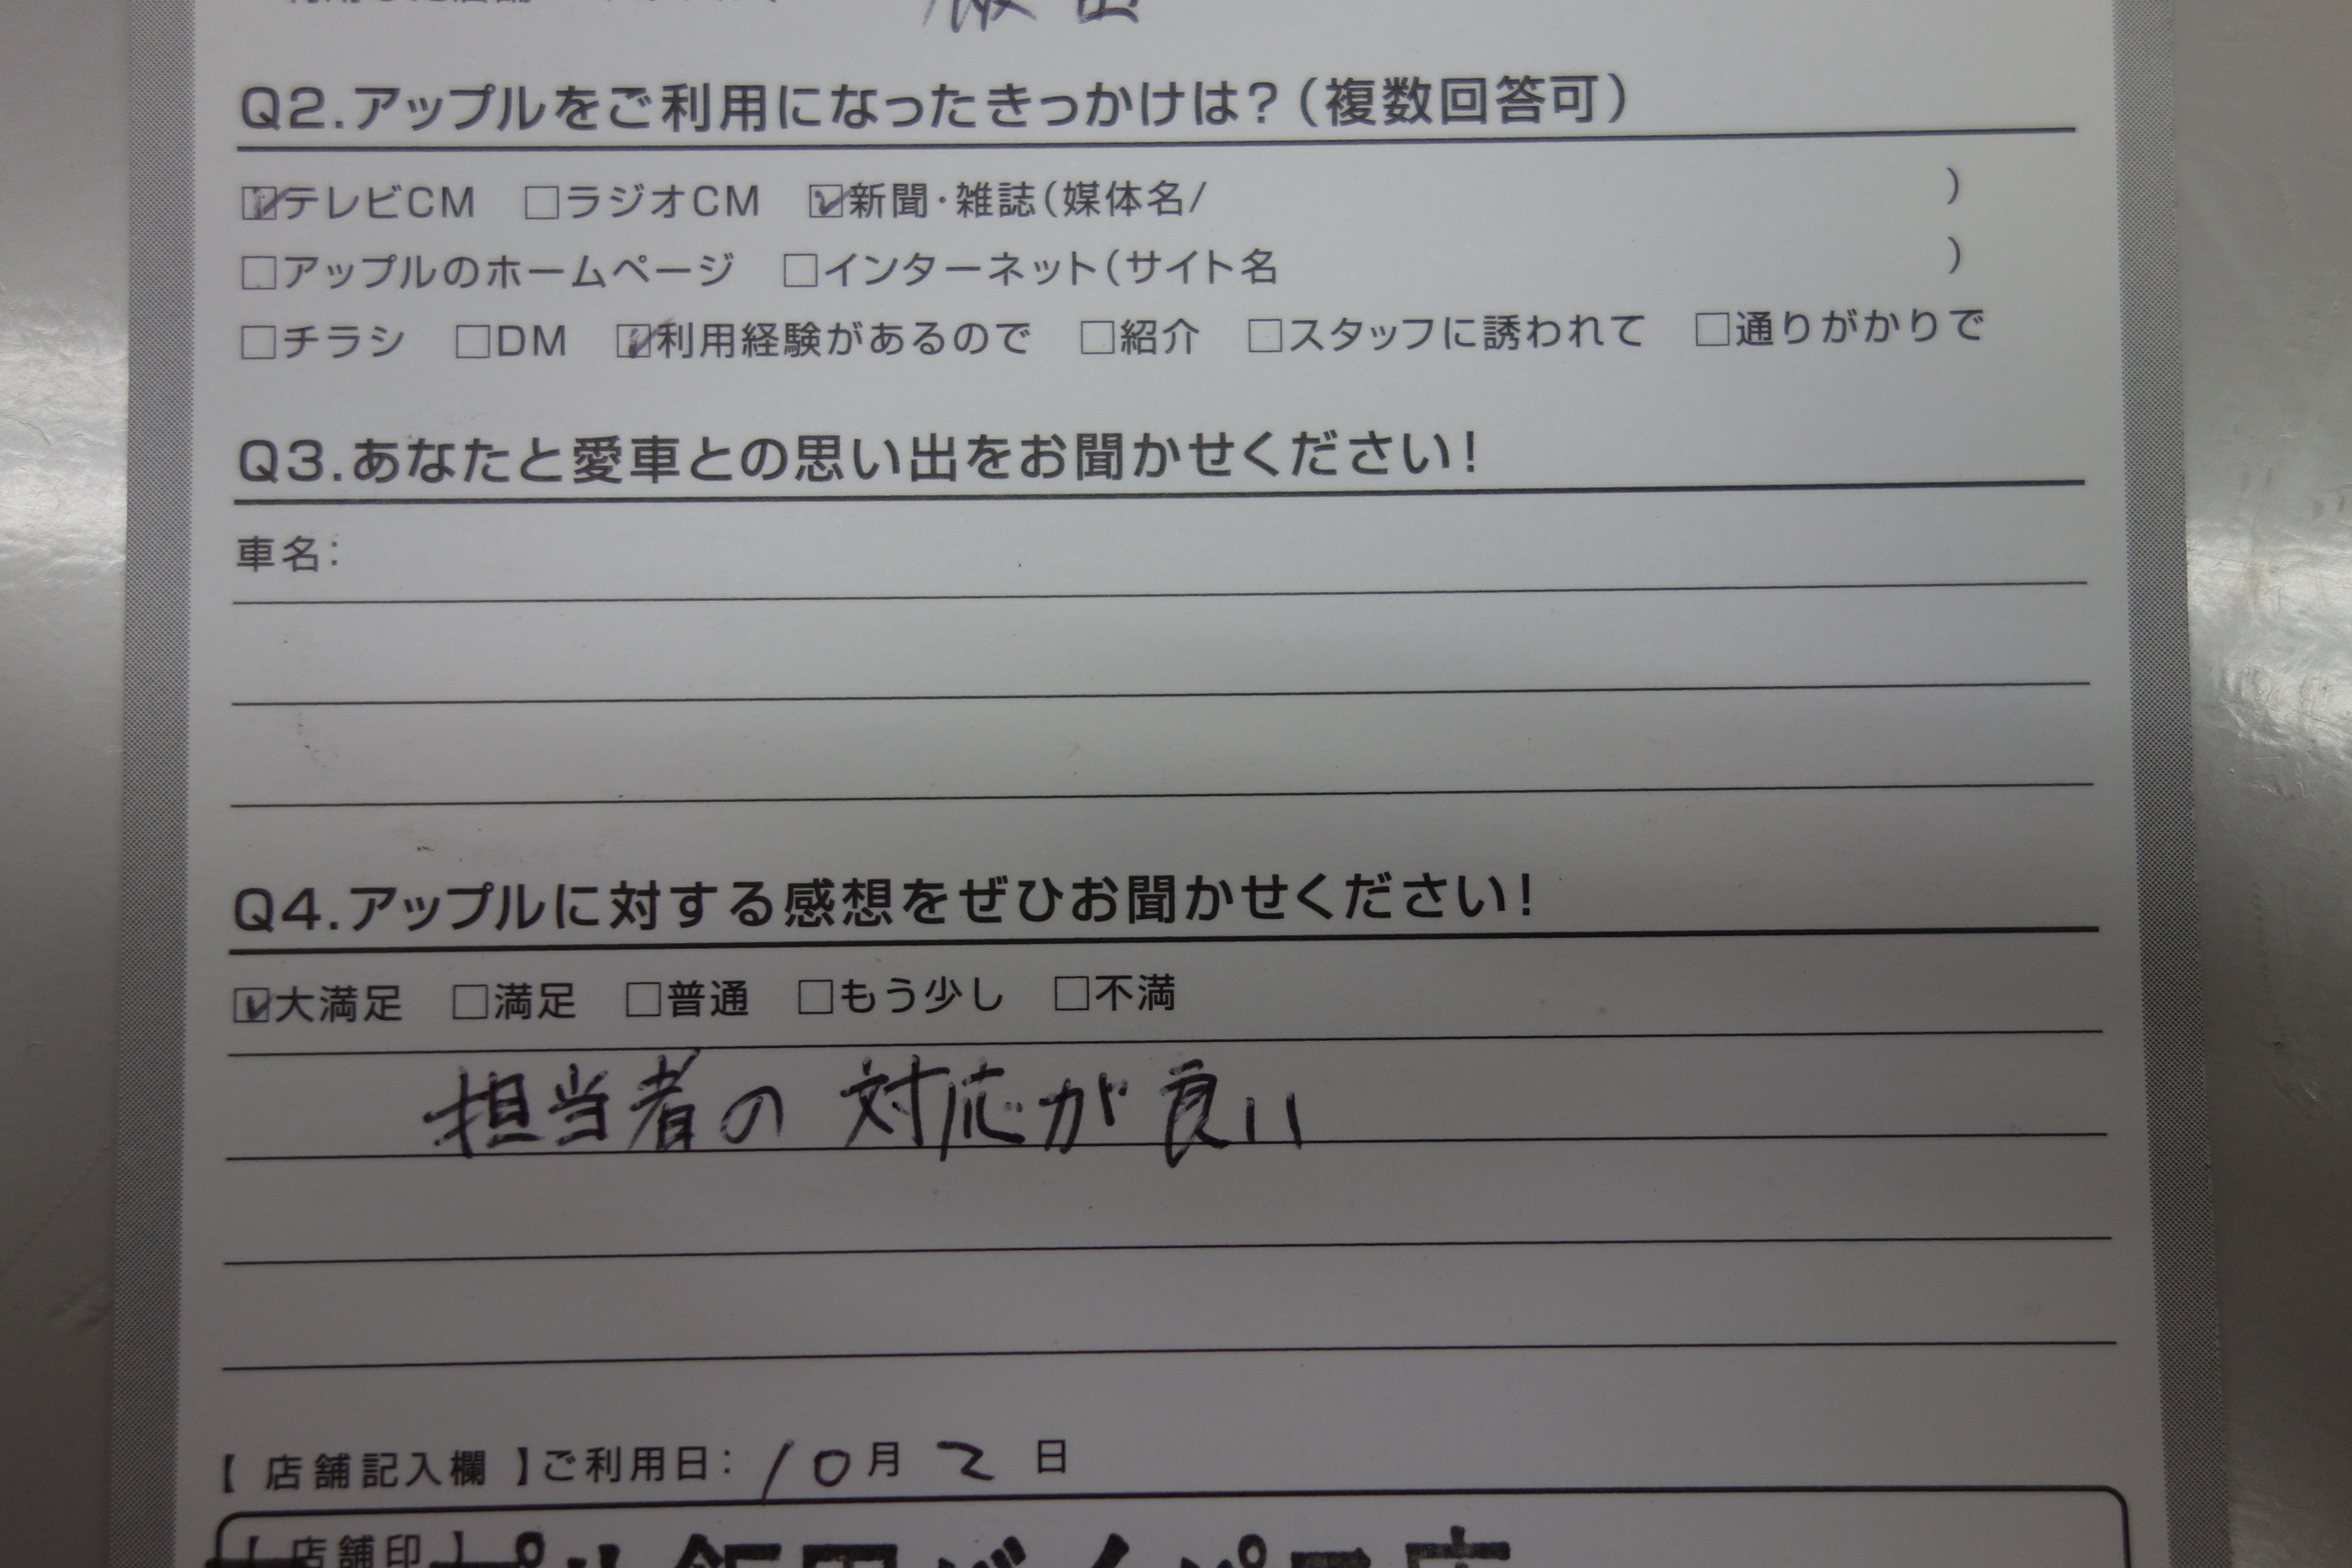 Q2.アップルをご利用になったきっかけは?(複数回答可)
☑テレビCM □ラジオCM ☑新聞・雑誌(媒体名/ )
□アップルのホームページ □インターネット(サイト名 )
□チラシ □DM ☑利用経験があるので □紹介 □スタッフに誘われて □通りがかりで
Q3.あなたと愛車との思い出をお聞かせください!
車名:
Q4.アップルに対する感想をぜひお聞かせください!
☑大満足 □満足 □普通 □もう少し □不満
担当者の対応が良い
【 店舗記入欄 】ご利用日: 10月 2 日
【 店舗印 】